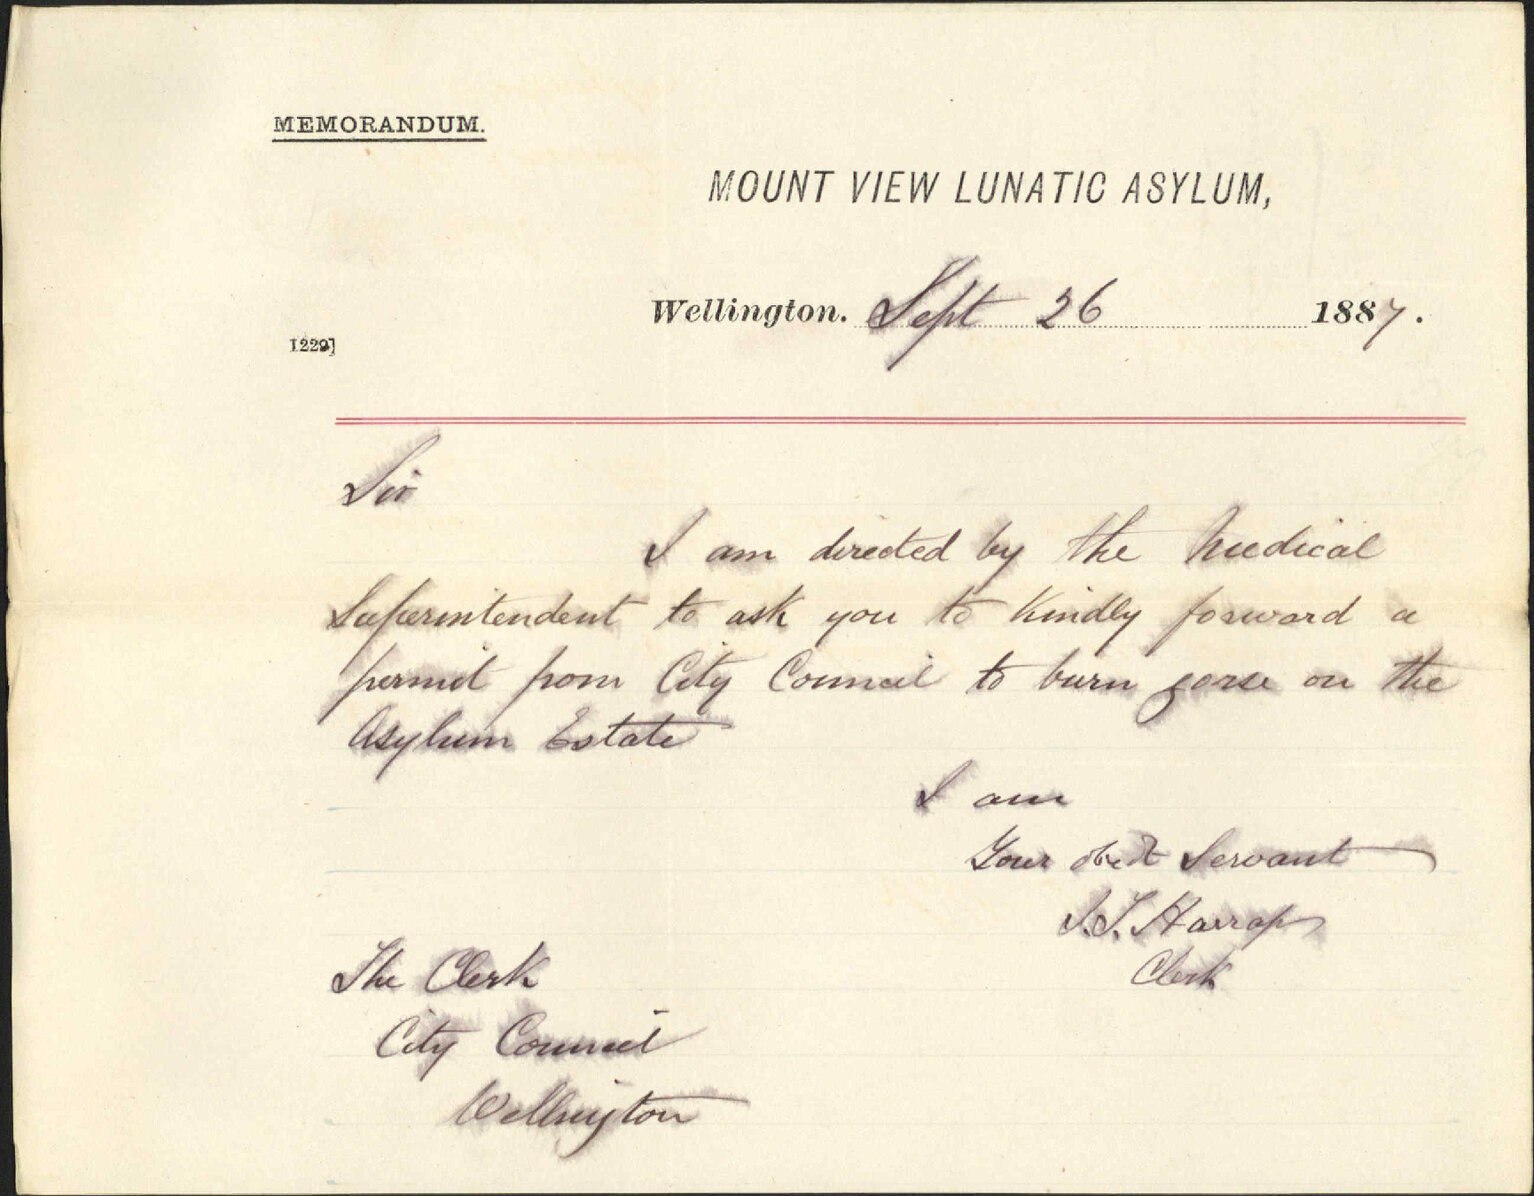 MEMORANDUM.
MOUNT VIEW LUNATIC ASYLUM,
Wellington. Sept 26 1887.
1229]
Sir
I am directed by the Medical
Superintendent to ask you to kindly forward a
permit from City Council to burn gorse on the
Asylum Estate
I am
Your obedt Servant
J.T. Harrap
Clerk
The Clerk
City Council
Wellington